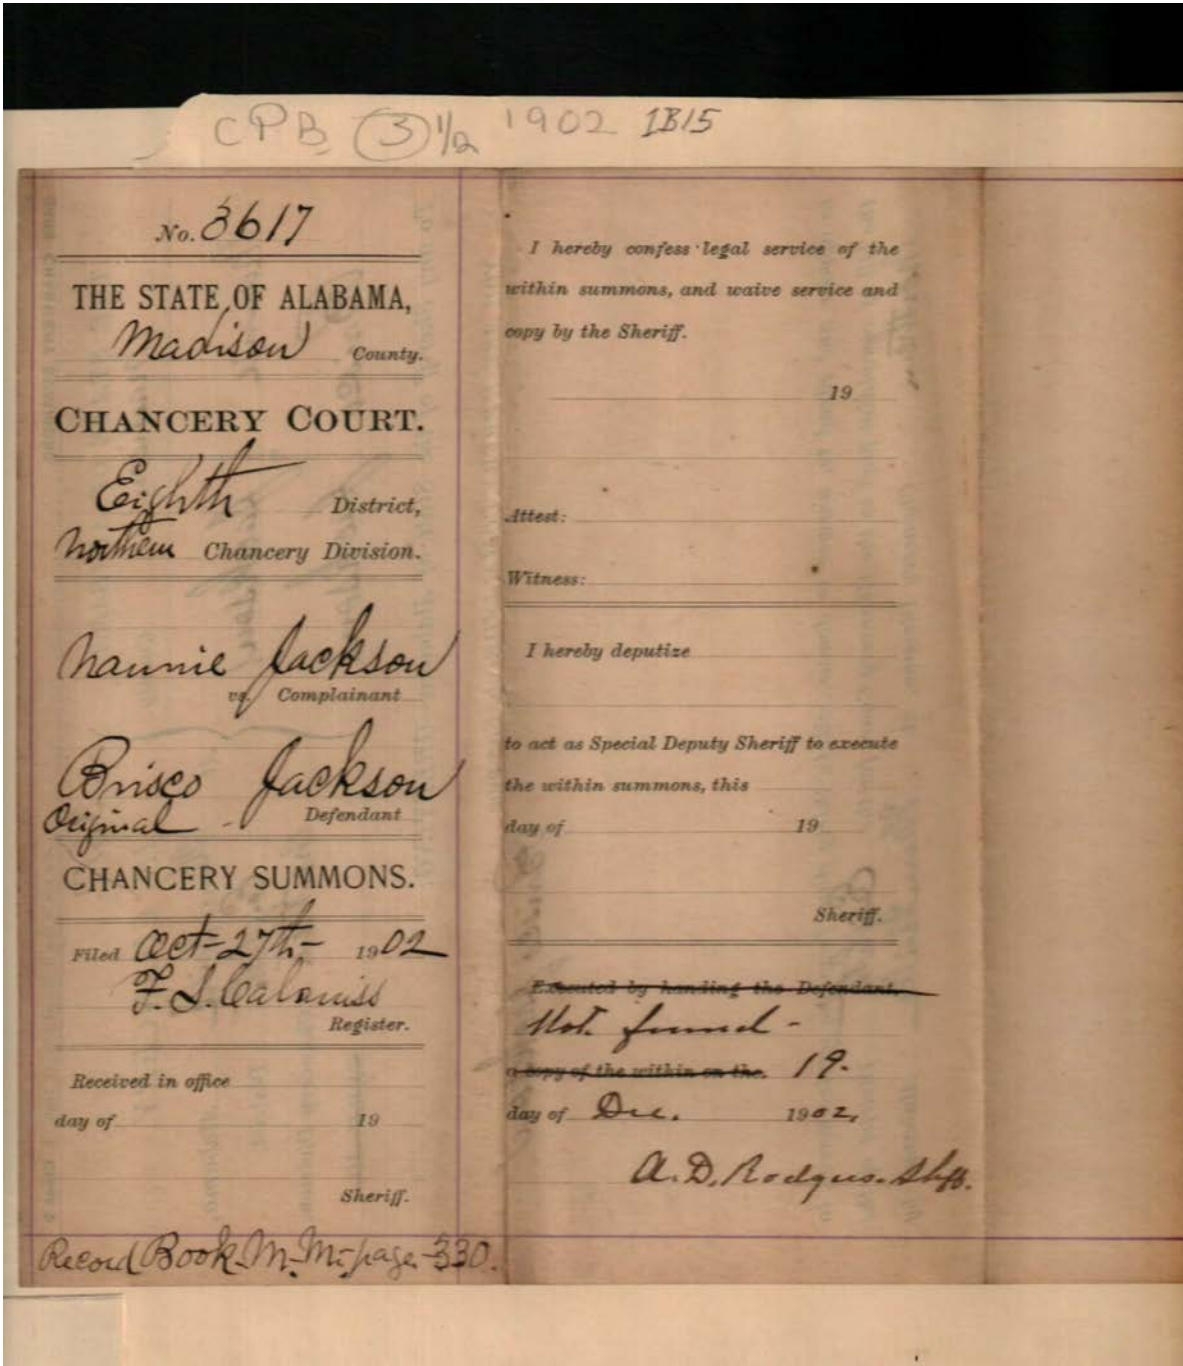 CPB (3) 1/2 1902 1B15
No. 3617
THE STATE OF ALABAMA,
Madison County.
CHANCERY COURT.
Eighth District,
Northern Chancery Division.
Nannie Jackson
vs. Complainant
Brisco Jackson
Original Defendant
CHANCERY SUMMONS.
Filed Oct-27th- 1902
F. S.
Register.
Received in office
day of 19
Sheriff.
Record Book M-M-page-330.
I hereby confess legal service of the
within summons, and waive service and
copy by the Sheriff.
19
Attest:
Witness:
I hereby deputize
to act as Special Deputy Sheriff to execute
the within summons, this
day of 19
Sheriff.
Executed by handing the Defendant
Not found -
a copy of the within on the. 19.
day of Dec. 1902,
A. D. Rodgers. Shff.